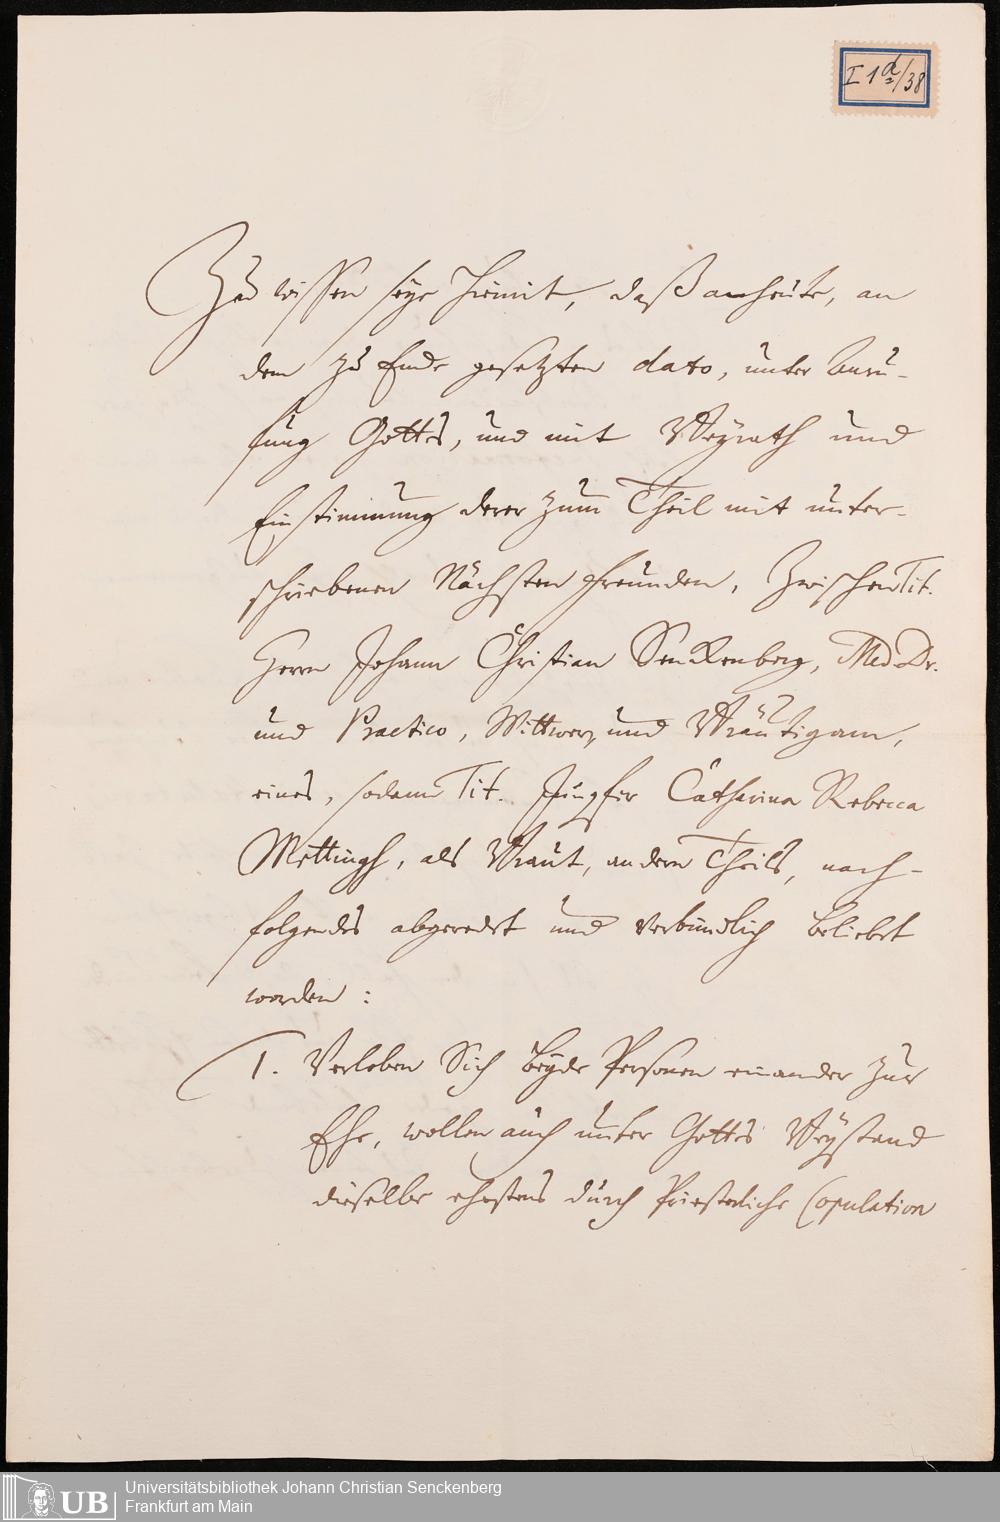 I 1 d/38
Zu wissen seye hiermit, daß anheute, an
dem zu Ende gesetzten dato, unter Anru-
fung Gottes, und mit Beyrath und
Einstimmung derer zum Theil mit unter-
schriebenen Nächsten Freunden, Zwischen Tit.
Herrn Johann Christian Senckenberg, Med. Dr.
und Practico, Wittwer, und Bräutigam,
eines, sodann Tit. Jungfer Catharina Rebecca
Mettingh, als Braut, andern Theils, nach-
folgendes abgeredet und verbindlich beliebet
worden:
1. Verloben Sich beyde Personen einander zur
Ehe, wollen auch unter Gottes Beystand
dieselbe ehestens durch Priesterliche Copulation
UB
Universitätsbibliothek Johann Christian Senckenberg
Frankfurt am Main